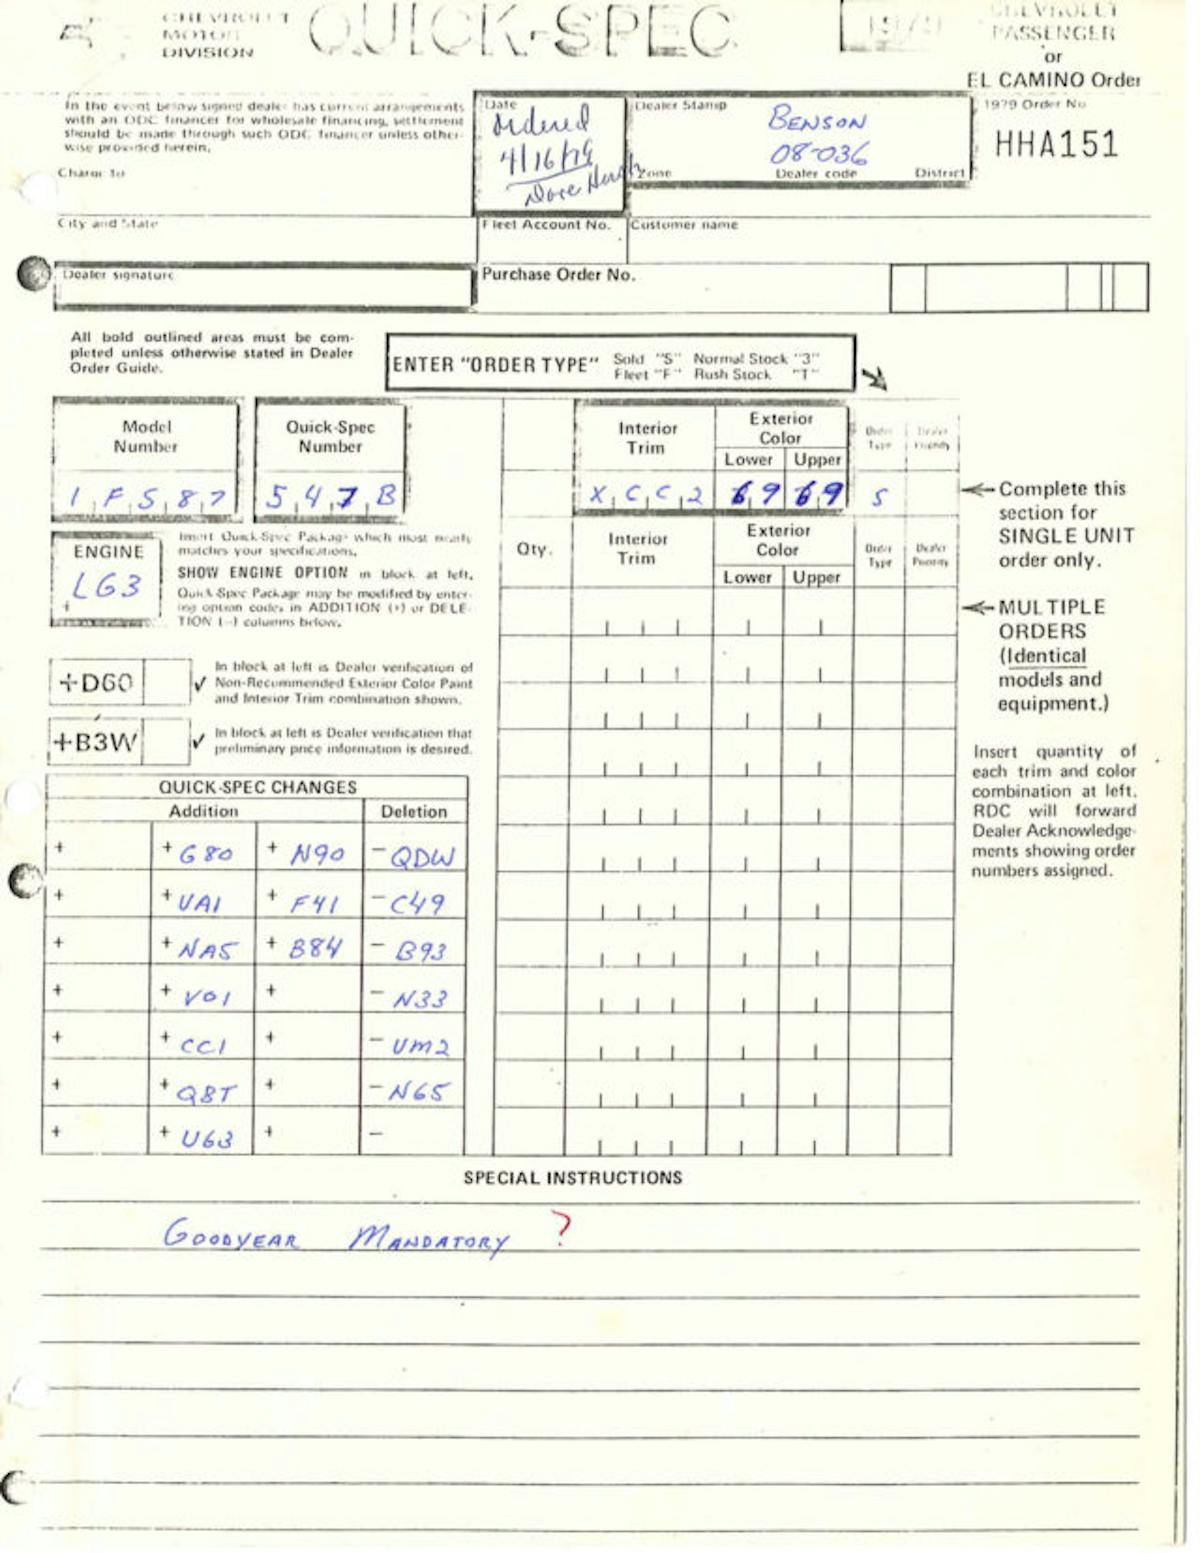 CHEVROLET
MOTOR
DIVISION
QUICK-SPEC
1979
CHEVROLET
PASSENGER
or
EL CAMINO Order
In the event below signed dealer has current arrangements
with an ODC financer for wholesale financing, settlement
should be made through such ODC financer unless other-
wise provided herein.
Charge to
Date
Ordered
4/16/79
Dealer Stamp
BENSON
08-036
Zone Dealer code District
1979 Order No.
HHA151
City and State
Fleet Account No. Customer name
Dealer signature
Purchase Order No.
All bold outlined areas must be com-
pleted unless otherwise stated in Dealer
Order Guide.
ENTER "ORDER TYPE" Sold "S" Normal Stock "3"
Fleet "F" Rush Stock "T"
Model
Number
1 F S 8 7
Quick-Spec
Number
5 4 7 B
Interior
Trim
X C C 2
Exterior
Color
Lower Upper
69 69
Order
Type
S
Dealer
Priority
← Complete this
section for
SINGLE UNIT
order only.
ENGINE
LG3
+
Insert Quick-Spec Package which most nearly
matches your specifications.
SHOW ENGINE OPTION in block at left.
Quick-Spec Package may be modified by enter-
ing option codes in ADDITION (+) or DELE-
TION (-) columns below.
Qty.
Interior
Trim
Exterior
Color
Lower Upper
Order
Type
Dealer
Priority
← MULTIPLE
ORDERS
(Identical
models and
equipment.)
+D60 ✓ In block at left is Dealer verification of
Non-Recommended Exterior Color Paint
and Interior Trim combination shown.
+B3W ✓ In block at left is Dealer verification that
preliminary price information is desired.
Insert quantity of
each trim and color
combination at left.
RDC will forward
Dealer Acknowledge-
ments showing order
numbers assigned.
QUICK-SPEC CHANGES
Addition Deletion
+ + G80 + N90 - QDW
+ + UA1 + F41 - C49
+ + NA5 + B84 - B93
+ + V01 + - N33
+ + CC1 + - UM2
+ + Q8T + - N65
+ + U63 + -
SPECIAL INSTRUCTIONS
GOODYEAR MANDATORY ?